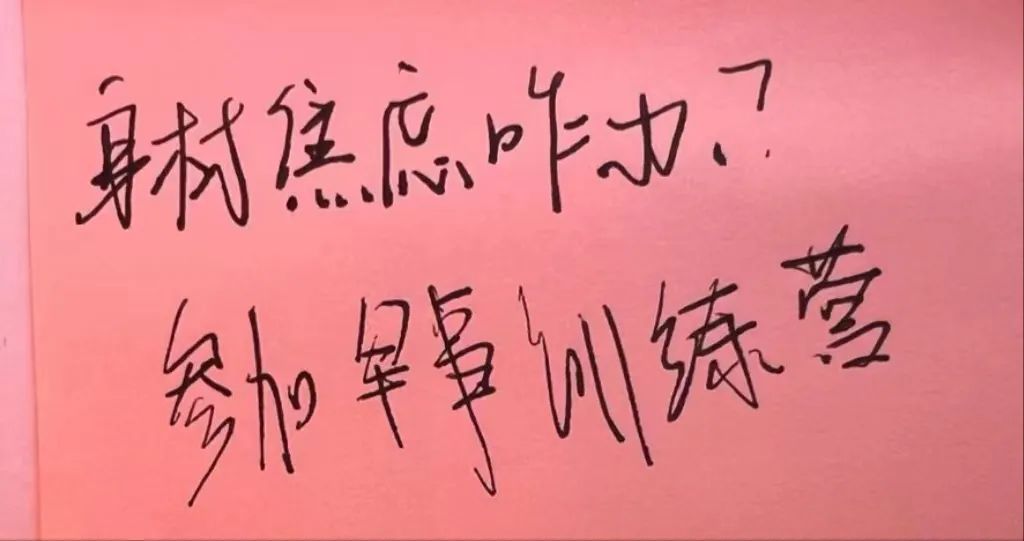 身材焦虑咋办?
参加军事训练营